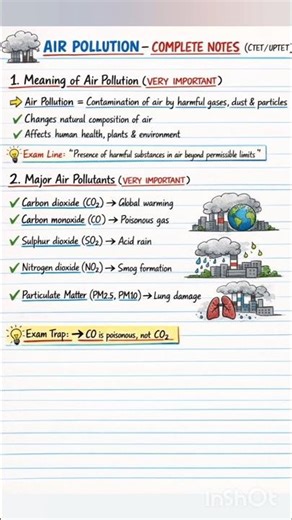 AIR POLLUTION – COMPLETE NOTES (CTET/UPTET)
1. Meaning of Air Pollution (VERY IMPORTANT)
⇨ Air Pollution = Contamination of air by harmful gases, dust & particles
✓ Changes natural composition of air
✓ Affects human health, plants & environment
Exam Line: "Presence of harmful substances in air beyond permissible limits"
2. Major Air Pollutants (VERY IMPORTANT)
✓ Carbon dioxide (CO₂) → Global warming
✓ Carbon monoxide (CO) → Poisonous gas
✓ Sulphur dioxide (SO₂) → Acid rain
✓ Nitrogen dioxide (NO₂) → Smog formation
✓ Particulate Matter (PM2.5, PM10) → Lung damage
Exam Trap: → CO is poisonous, not CO₂
InShOt